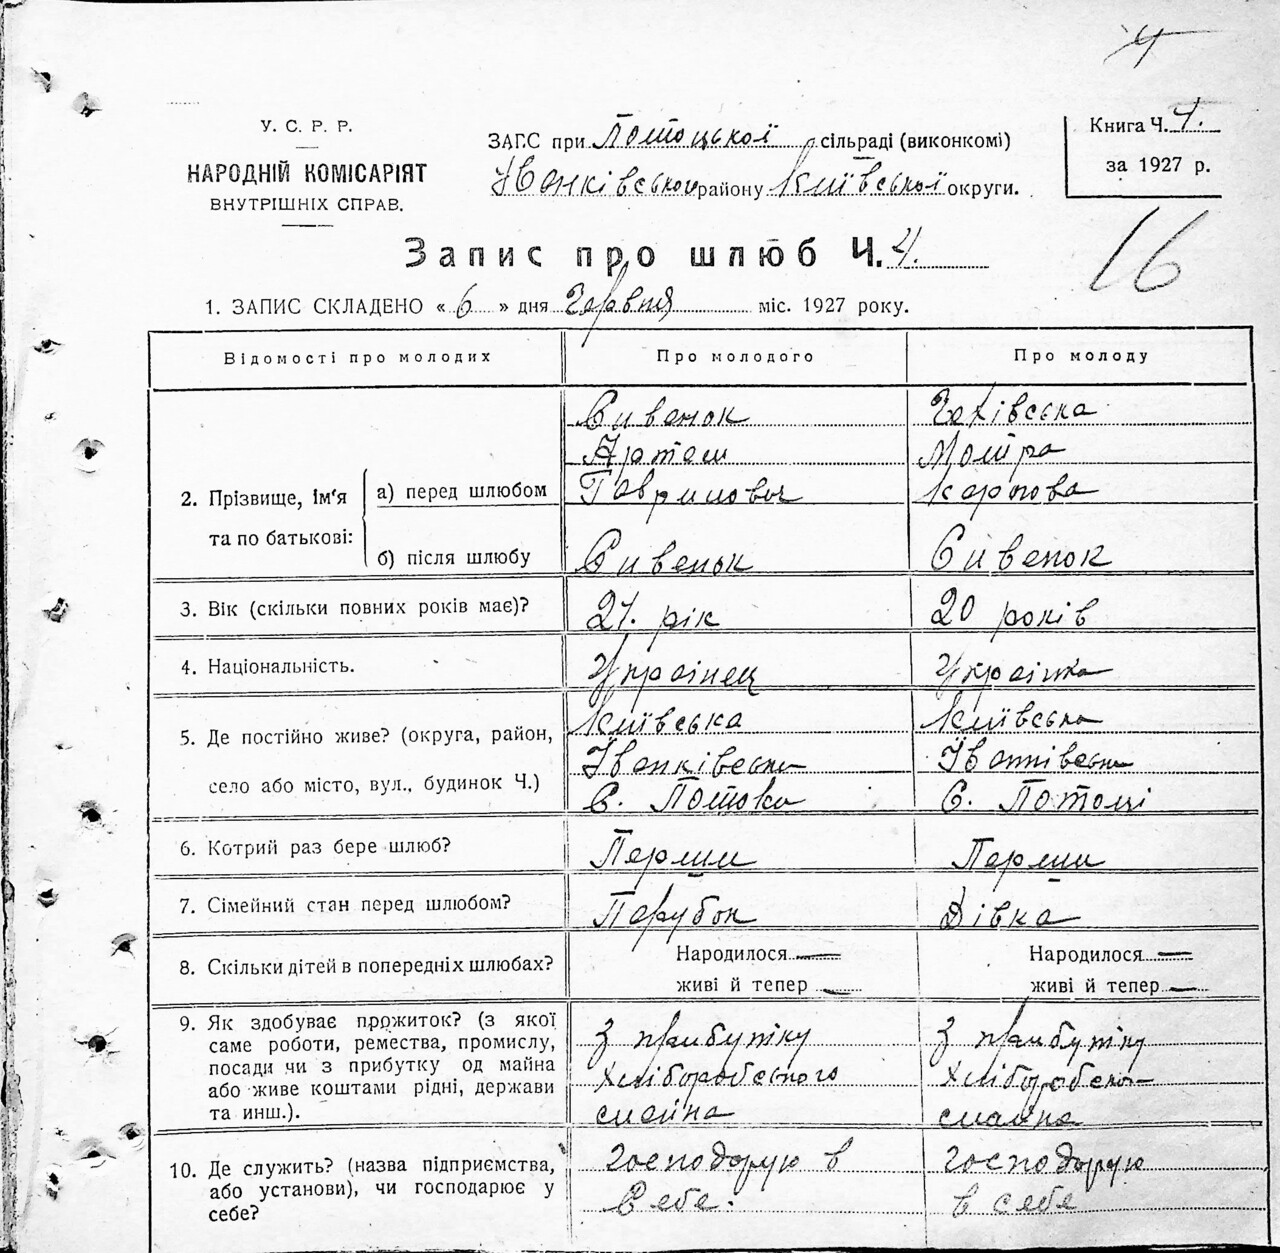 4
У. С. Р. Р.
НАРОДНІЙ КОМІСАРІЯТ
ВНУТРІШНІХ СПРАВ.
ЗАГС при Потоцької сільраді (виконкомі)
Іванківської району Київської округи.
Книга Ч. 1.
за 1927 р.
16
Запис про шлюб Ч. 4.
1. ЗАПИС СКЛАДЕНО « 6 » дня Червня міс. 1927 року.
Відомості про молодих Про молодого Про молоду
Сивенок Чехівська
Артем Мотра
2. Прізвище, ім'я та по батькові: а) перед шлюбом Гаврилович Карпова
б) після шлюбу Сивенок Сивенок
3. Вік (скільки повних років має)? 21. рік 20 років
4. Національність. Українец Українка
5. Де постійно живе? (округа, район, Київська Київська
Іванківськи Іванківськи
село або місто, вул., будинок Ч.) С. Потока С. Потоці
6. Котрий раз бере шлюб? Перший Перший
7. Сімейний стан перед шлюбом? Парубок Дівка
8. Скільки дітей в попередніх шлюбах? Народилося — Народилося —
живі й тепер — живі й тепер —
9. Як здобуває прожиток? (з якої
саме роботи, ремества, промислу, З прибутку З прибутку
посади чи з прибутку од майна
або живе коштами рідні, держави хліборобського хліборобско-
та инш.). смайна смайна
10. Де служить? (назва підприємства, Господорую в Господорую
або установи), чи господарює у Себе. в себе
себе?